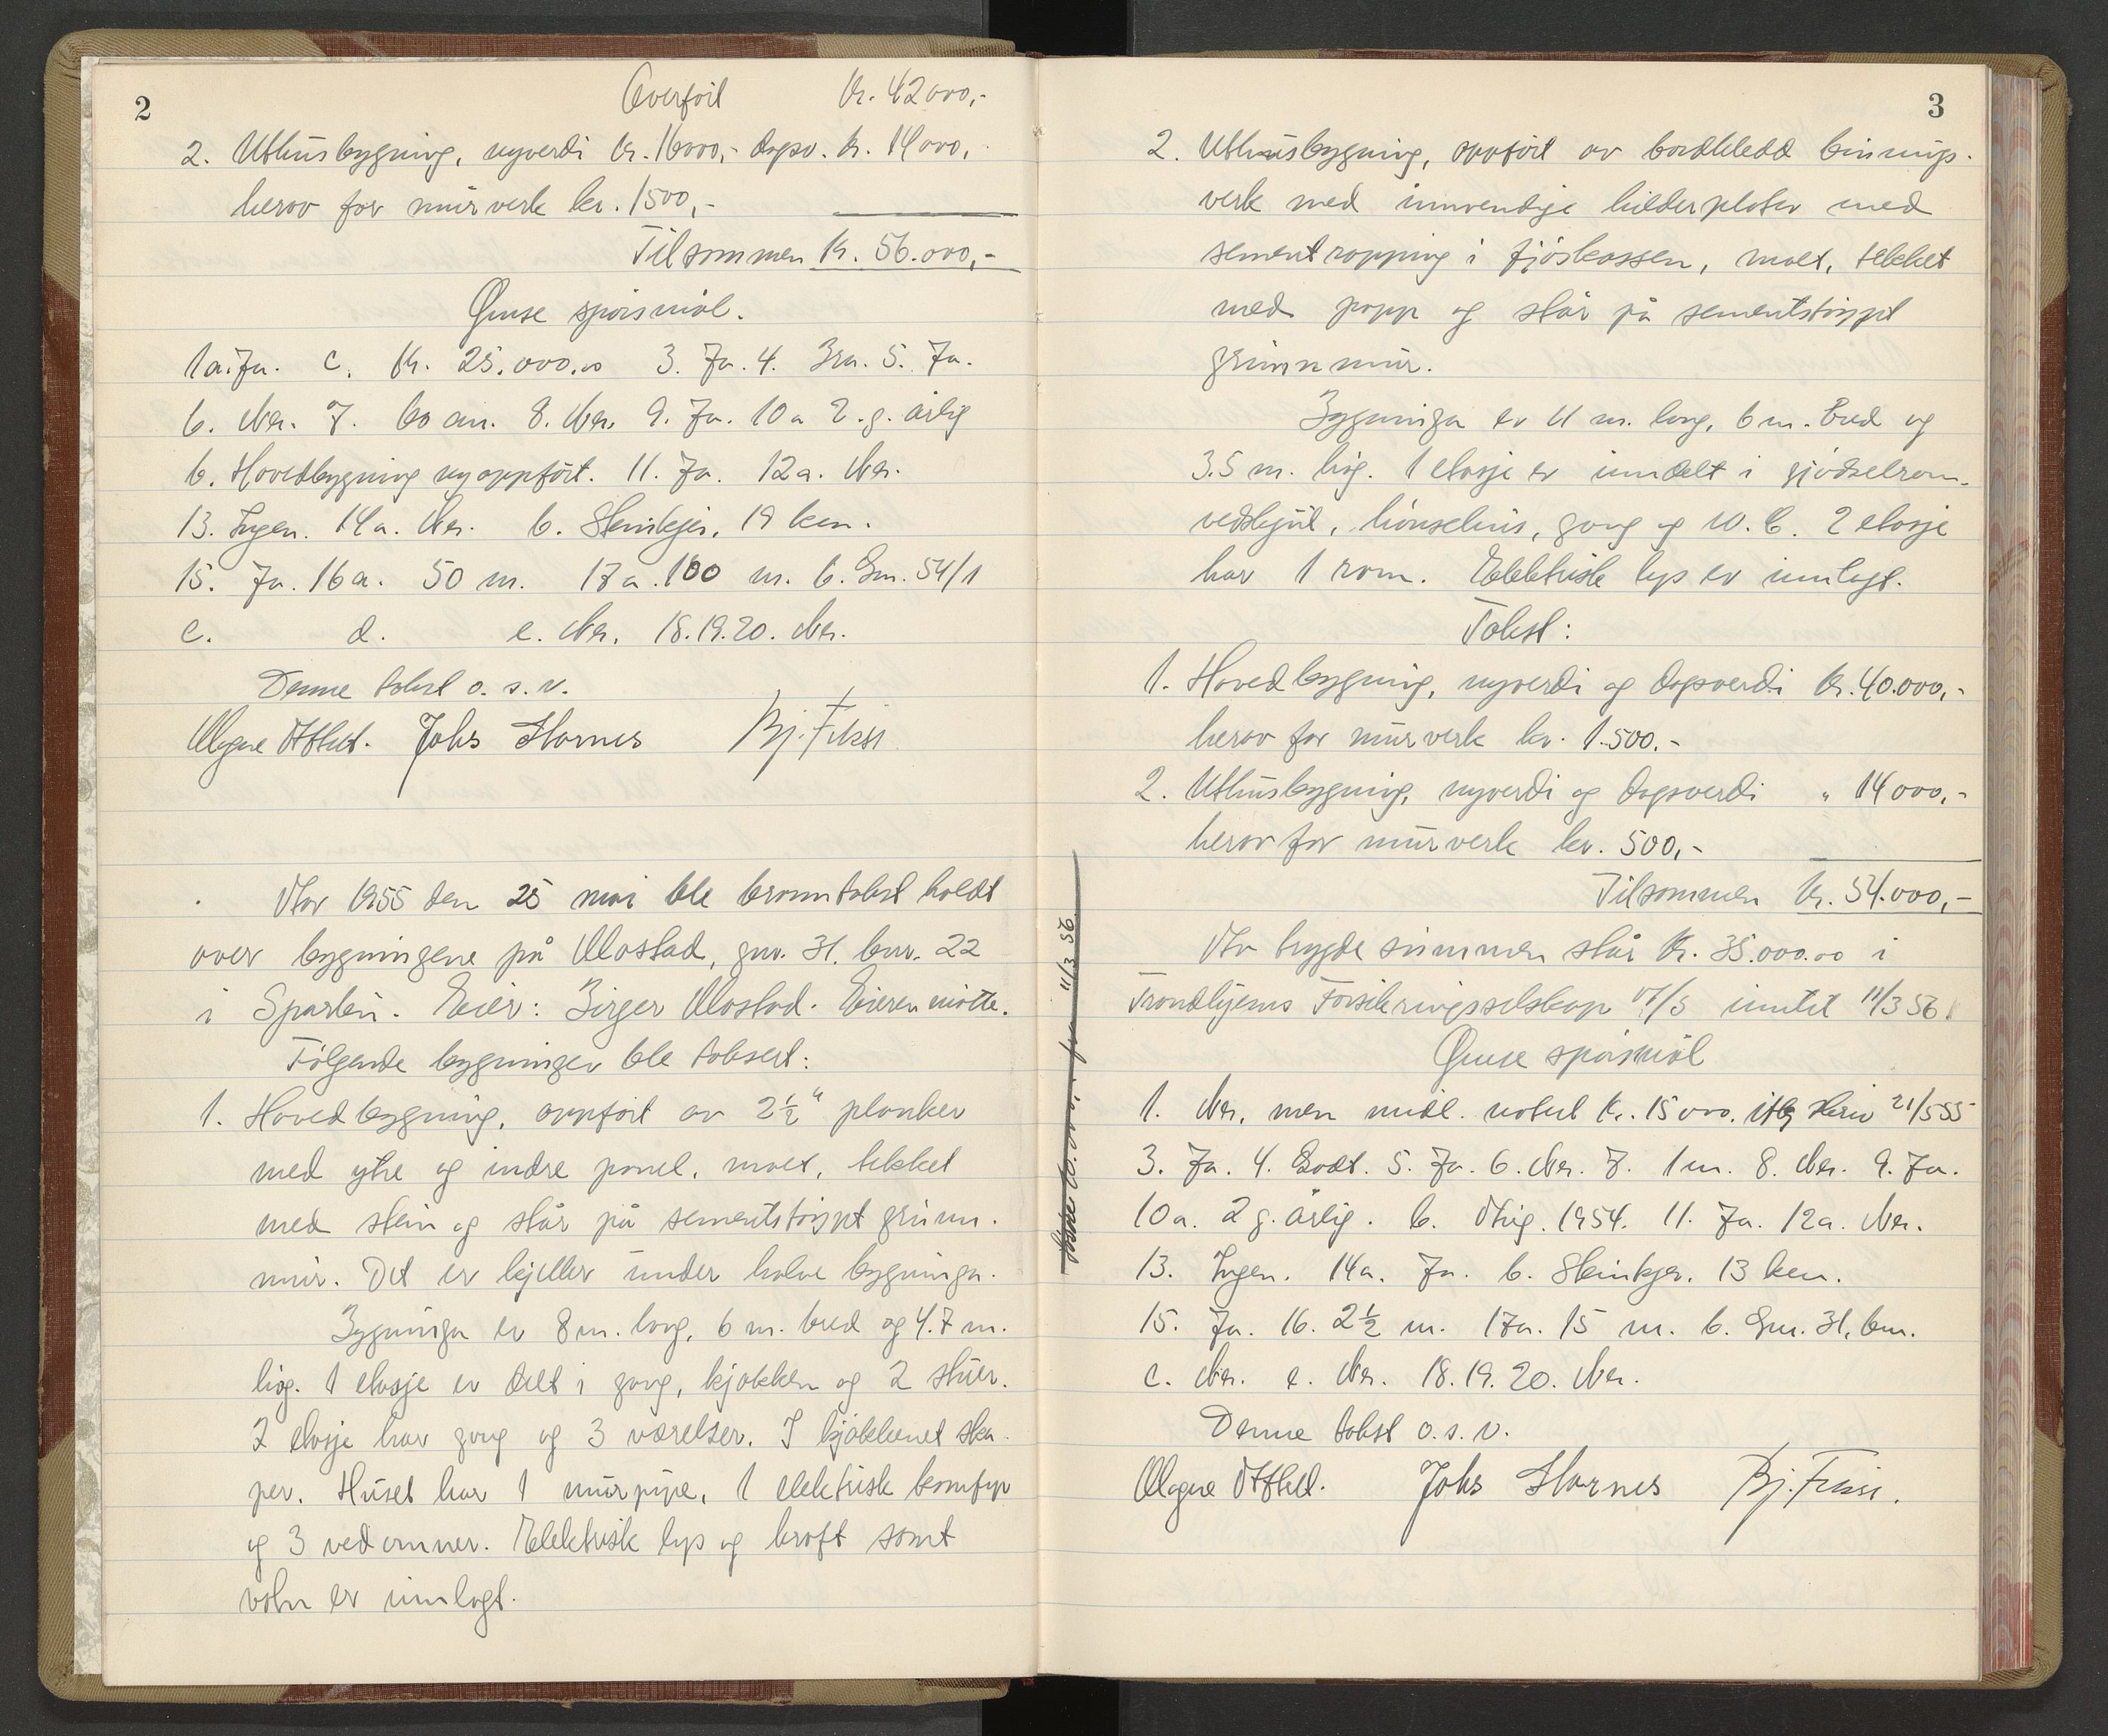 2
Overført Kr. 42000,-
2. Uthusbygning, nyverdi kr. 16000,- dagsv. kr. 14000,
herav for murverk kr. 1500,-
Tilsammen Kr. 56.000,-
Øvrige spørsmål.
1a. Ja. c. Kr. 25.000.00 3. Ja. 4. Bra. 5. Ja.
6. Nei. 7. 60 cm. 8. Nei. 9. Ja. 10a 2. g. årlig
b. Hovedbygning nyoppført. 11. Ja. 12a. Nei.
13. Ingen. 14a. Nei. b. Steinkjer, 19 km.
15. Ja. 16a. 50 m. 17a. 100 m. b. Gnr. 54/1
c. d. e. Nei. 18.19.20. Nei.
Denne takst o. s. v.
Magne Johs Stornes Bj.
År 1955 den 25 mai ble branntakst holdt
over bygningene på Mostad, gnr. 31, bnr. 22
i Sparbu. Eier: Birger Mostad. Eieren møtte.
Følgende bygninger ble taksert:
1. Hovedbygning, oppført av 2½" planker
med ytre og indre panel, malt, tekket
med stein og står på sementstøypt grunn-
mur. Det er kjeller under halve bygninga.
Bygninga er 8 m. lang, 6 m. bred og 4.7 m.
høg. 1 etasje er delt i gang, kjøkken og 2 stuer.
2 etasje har gang og 3 værelser. I kjøkkenet ska-
per. Huset har 1 murpipe, 1 elektrisk komfyr
og 3 vedomner. Elektrisk lys og kraft samt
vatn er innlagt.
3
2. Uthusbygning, oppført av bordkledd binnings-
verk med innvendige kilderplater med
sementrapping i fjøskassen, malt, tekket
med papp og står på sementstøypt
grunnmur.
Bygninga er 11 m. lang, 6 m. bred og
3.5 m. høg. 1 etasje er inndelt i gjødselrom,
vedskjul, hønsehus, gang og W.C. 2 etasje
har 1 rom. Elektrisk lys er innlagt.
Takst:
1. Hovedbygning, nyverdi og dagsverdi kr. 40.000,-
herav for murverk kr. 1.500,-
2. Uthusbygning, nyverdi og dagsverdi " 14000,-
herav for murverk kr. 500,-
Tilsammen kr. 54.000,-
Av bygde summen står Kr. 35.000.00 i
Trondhjems Forsikringsselskap /5 inntil 11/3 56.
fra 11/3 56
Øvrige spørsmål
1. Nei, men midl. notert kr. 15000. skriv 21/5 55
3. Ja. 4. Godt. 5. Ja. 6. Nei. 7. 1 m. 8. Nei. 9. Ja.
10a. 2 g. årlig. b. Aug. 1954. 11. Ja. 12a. Nei.
13. Ingen. 14a. Ja. b. Steinkjer. 13 km.
15. Ja. 16. 2½ m. 17a. 15 m. b. Gnr. 31, bnr.
c. Nei. e. Nei. 18.19.20. Nei.
Denne takst o. s. v.
Magne Johs Stornes Bj.